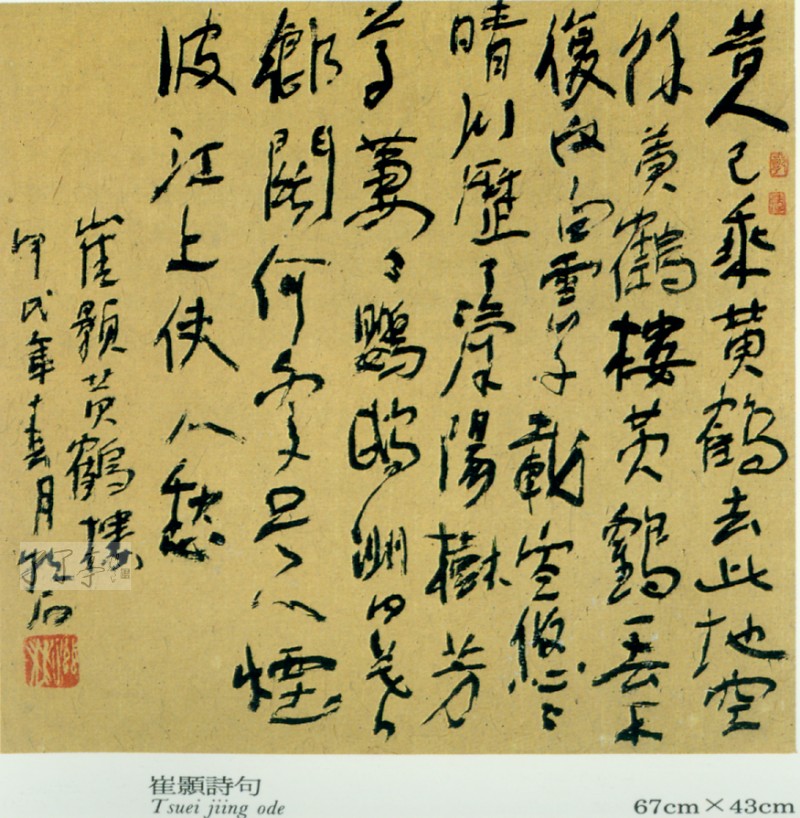 昔人已乘黃鶴去此地空
餘黃鶴樓黃鶴一去不
復返白雲千載空悠々
晴川歷々漢陽樹芳
草萋々鸚鵡洲日暮
鄉關何處是煙
波江上使人愁
崔顥黃鶴樓
甲戌年十月牧石
崔顥詩句
Tsuei jiing ode
67cm×43cm